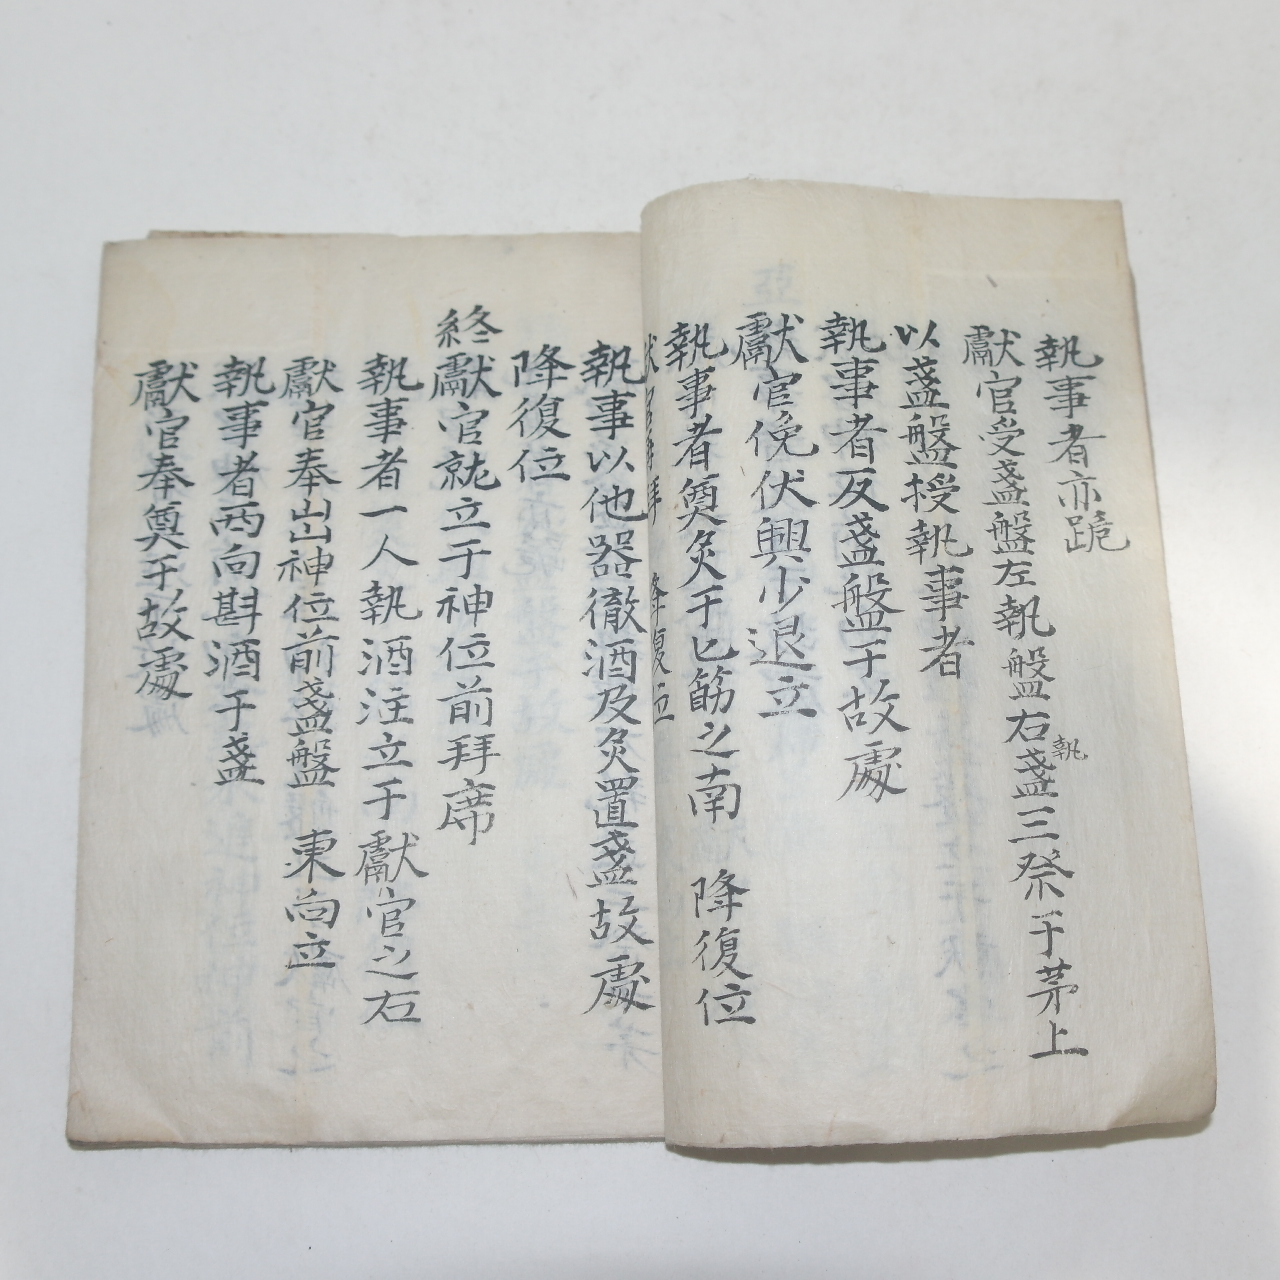 執事者亦跪
獻官受盞盤左執盤右執盞三祭于茅上
以盞盤授執事者
執事者反盞盤于故處
獻官俛伏興少退立
執事者奠炙于匕筯之南 降復位
獻官再拜 降復位
執事以他器徹酒及炙置盞故處
降復位
終獻官就立于神位前拜席
執事者一人執酒注立于獻官之右
獻官奉山神位前盞盤 東向立
執事者西向斟酒于盞
獻官奉奠于故處